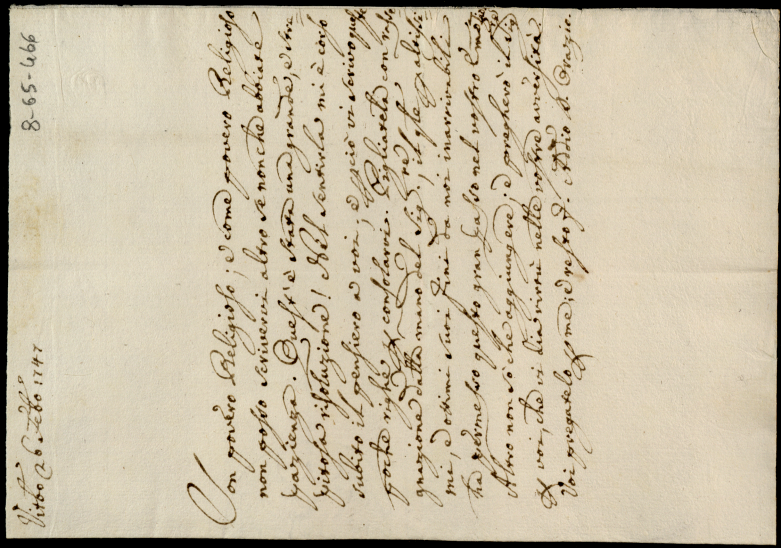 8-65-466
Vitbo 26 Febo 1747
Son povero Religioso; e come povero Religioso
non posso scrivervi altro se non che abbiate
pazienza. Quest' è stata una grande, e stre
pitosa risoluzione! Nel sentirla mi è corso
subito il pensiero a voi; e perciò vi scrivo queste
poche righe p consolarvi. Pigliatela con rasse
gnazione dalla mano del Sig. re, il qle p altissi=
mi, e ottimi suoi fini da noi inarrivabili
ha permesso questo gran passo nel vostro
Altro non sò che aggiungere; e pregherò il Sig
p voi, che vi dia virtù nelle vostre avversità.
Voi pregatelo p me; e resto p. Addio di Grazie.